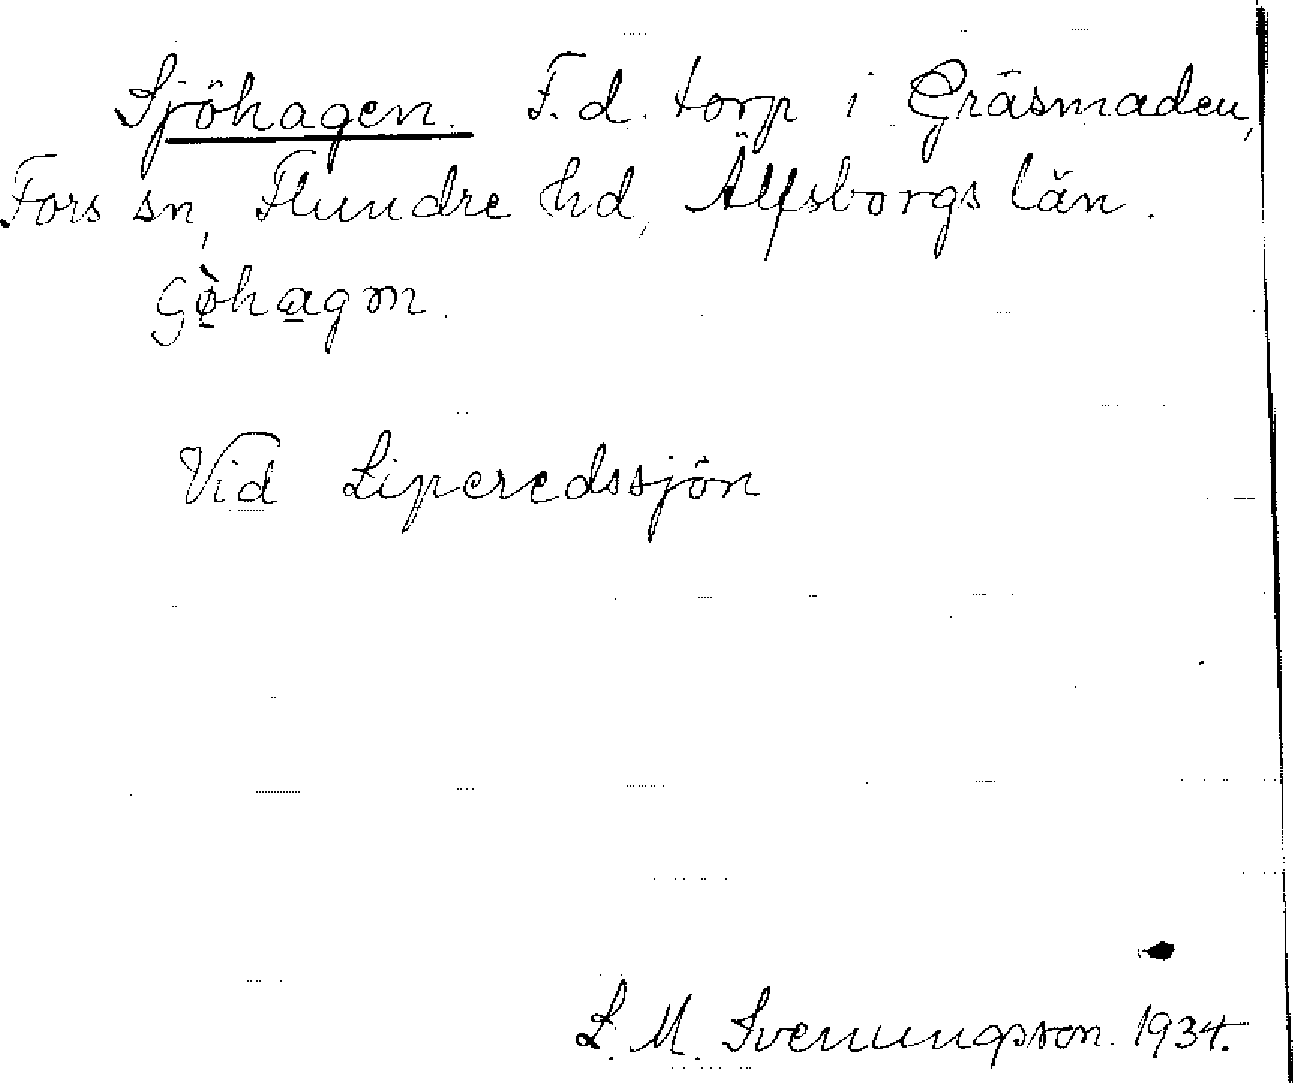 Sjöhagen. F.d. torp i Gräsmaden,
Fors sn, Flundre hd, Älfsborgs län.
Vid Liperedssjön
L. M. Svenungsson. 1934.